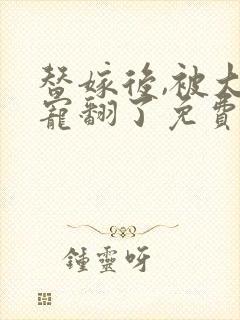 替嫁後,被大
寵翻了免費
鍾靈呀